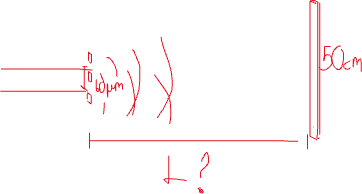 60μm
50cm
L?